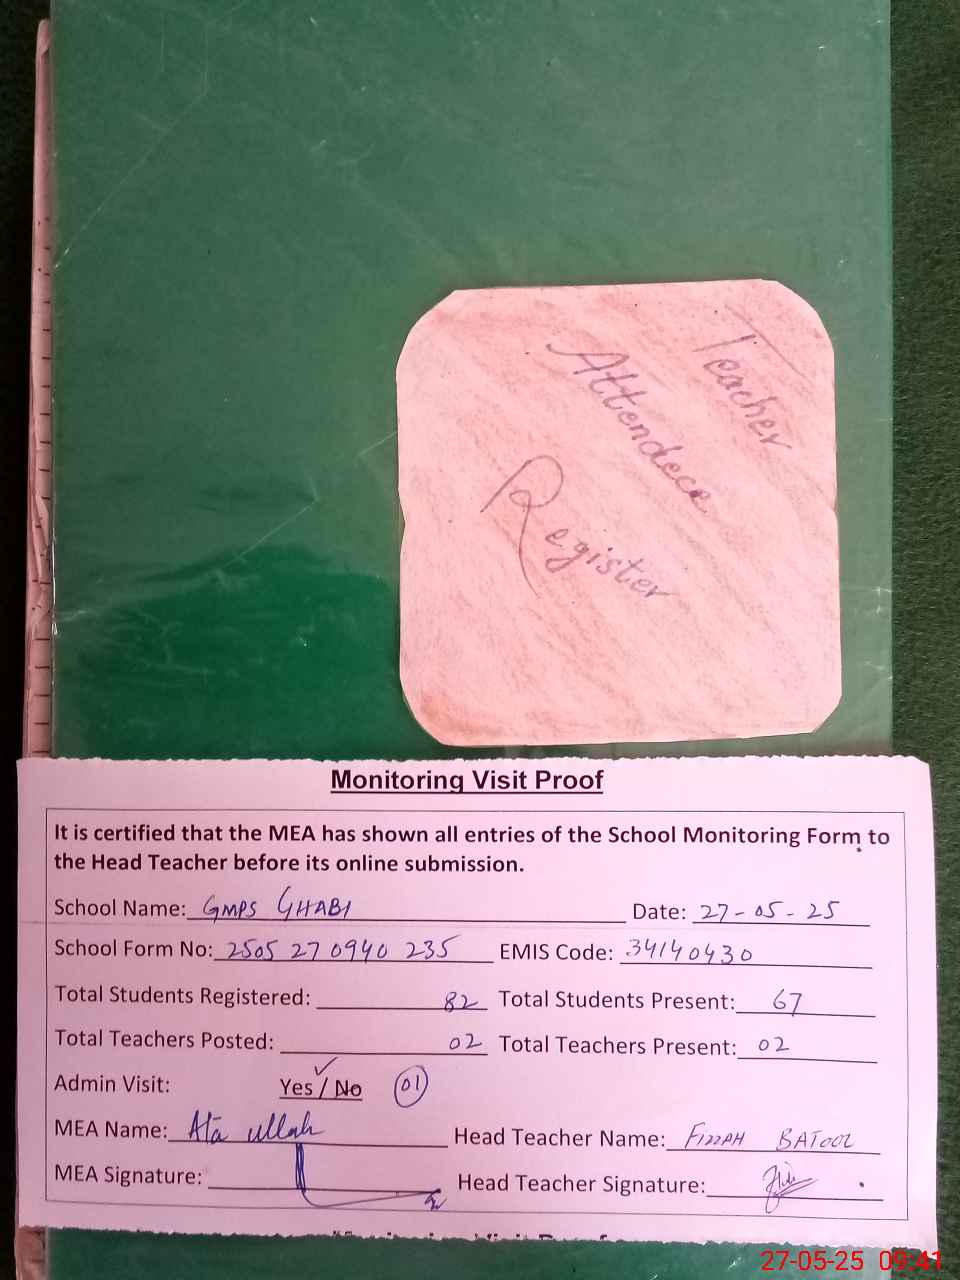 Teacher
Attendece
Register
Monitoring Visit Proof
It is certified that the MEA has shown all entries of the School Monitoring Form to
the Head Teacher before its online submission.
School Name: GMPS GHABI Date: 27-05-25
School Form No: 2505 27 0940 235 EMIS Code: 34140430
Total Students Registered: 82 Total Students Present: 67
Total Teachers Posted: 02 Total Teachers Present: 02
Admin Visit: Yes / No 01
MEA Name: Ata ullah Head Teacher Name: FIZZAH BATOOL
MEA Signature: Head Teacher Signature:
27-05-25 09:41